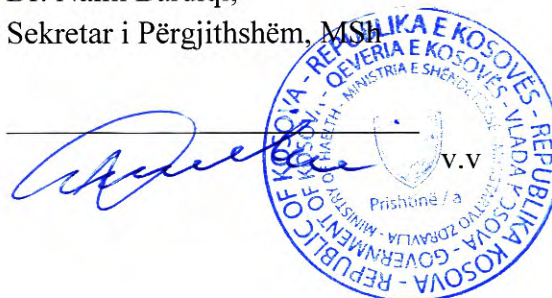 Sekretar i Përgjithshëm, MSh
v.v
REPUBLIKA E KOSOVËS - REPUBLIKA KOSOVA - REPUBLIC OF KOSOVA
QEVERIA E KOSOVËS - VLADA KOSOVA - GOVERNMENT OF KOSOVA
MINISTRIA E SHËNDETËSISË - MINISTARSTVO ZDRAVLJA - MINISTRY OF HAELTH
Prishtinë / a